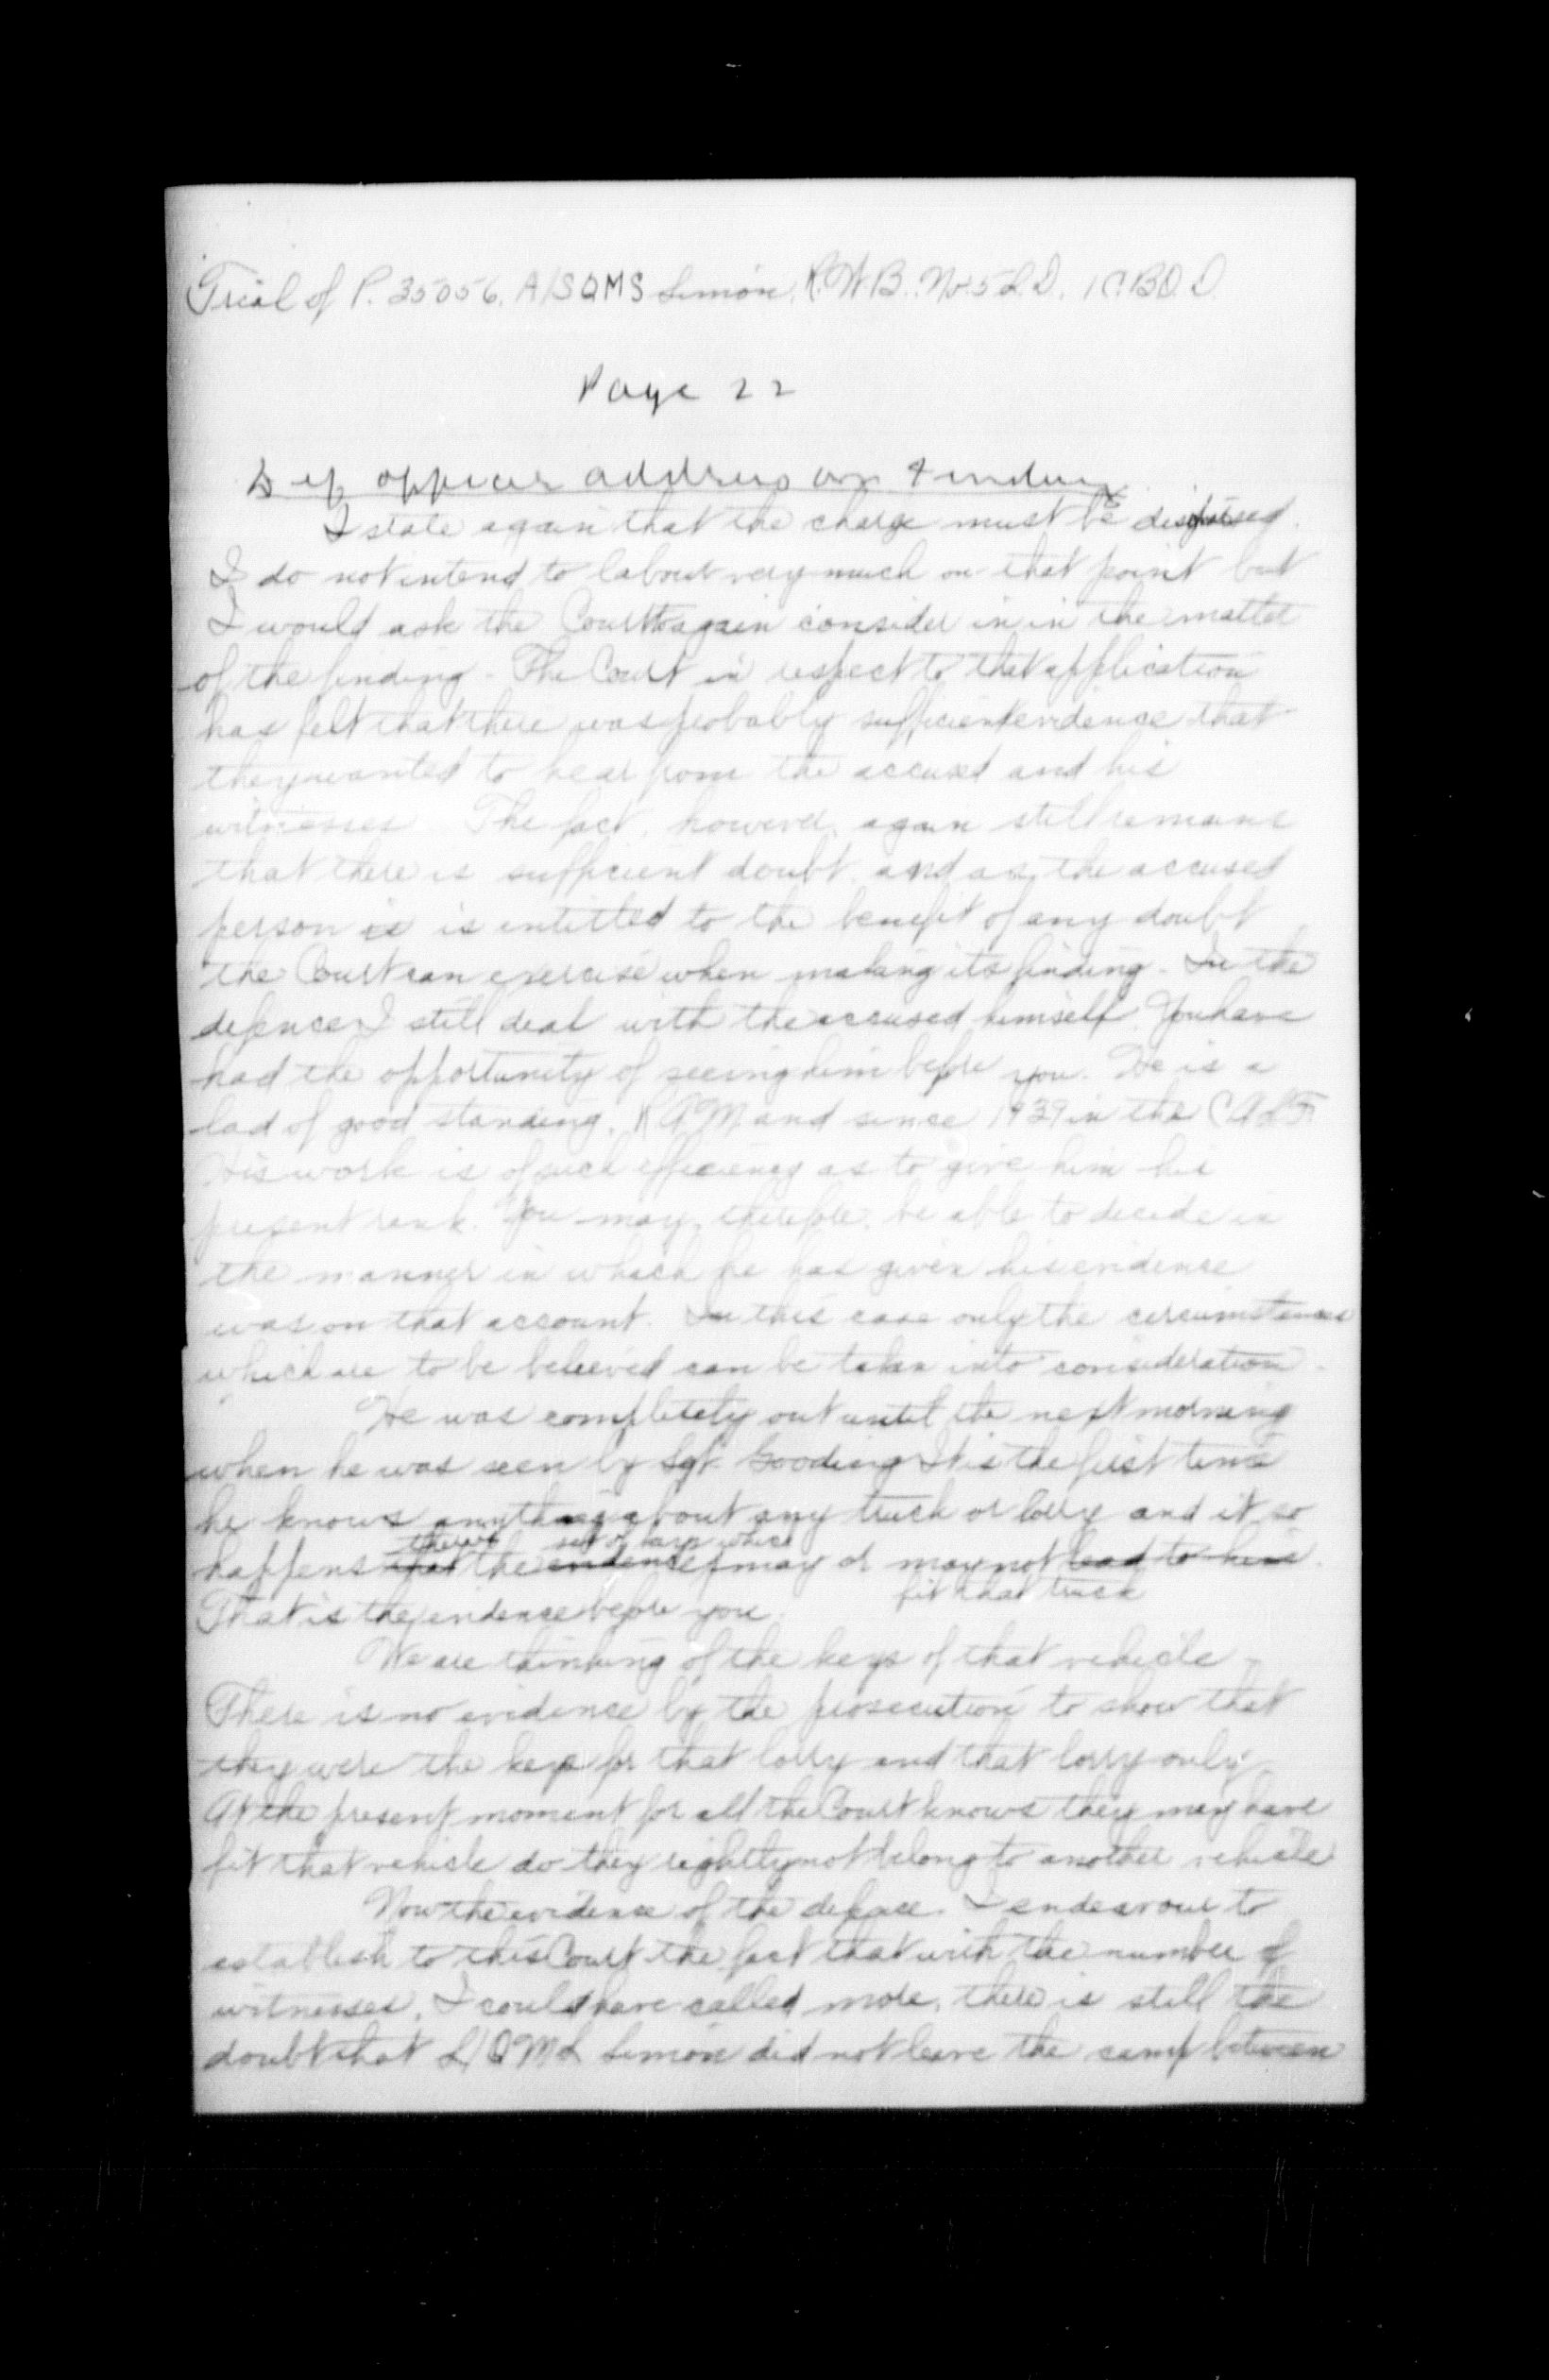 Trial of P. 35056. A/SQMS Simon, R.W.B. No. 5 L.D. 1 C.B.O.D.
Page 22
Def officer address on finding
I state again that the charge must be
I do not intend to labour very much on that point but
I would ask the Court to again consider in in the matter
of the finding. The Court in respect to that application
has felt that there was probably sufficient evidence that
they wanted to hear from the accused and his
witnesses. The fact, however, again still remains
that there is sufficient doubt, and as the accused
person is is entitled to the benefit of any doubt
the Court can exercise when making its finding. In the
defence I still deal with the accused himself. You have
had the opportunity of seeing him before you. He is a
lad of good standing, and since 1939 in the
His work is of such efficiency as to give him his
present rank. You may, therefore, be able to decide in
the manner in which he has given his evidence
was on that account. In this case only the circumstances
which are to be believed can be taken into consideration.
He was completely out until the next morning
when he was seen by Sgt. Gooding. It is the first time
he knows anything about any truck or lorry and it so
set of keys which
happens that the evidence may or may not lead to him.
fit that truck
That is the evidence before you.
We are thinking of the keys of that vehicle.
There is no evidence by the prosecution to show that
they were the keys for that lorry and that lorry only.
At the present moment for all the Court knows they may have
fit that vehicle do they rightly not belong to another vehicle
Now the evidence of the defence. I endeavour to
establish to this Court the fact that with the number of
witnesses, I could have called more, there is still the
doubt that S/QMS Simon did not leave the camp between